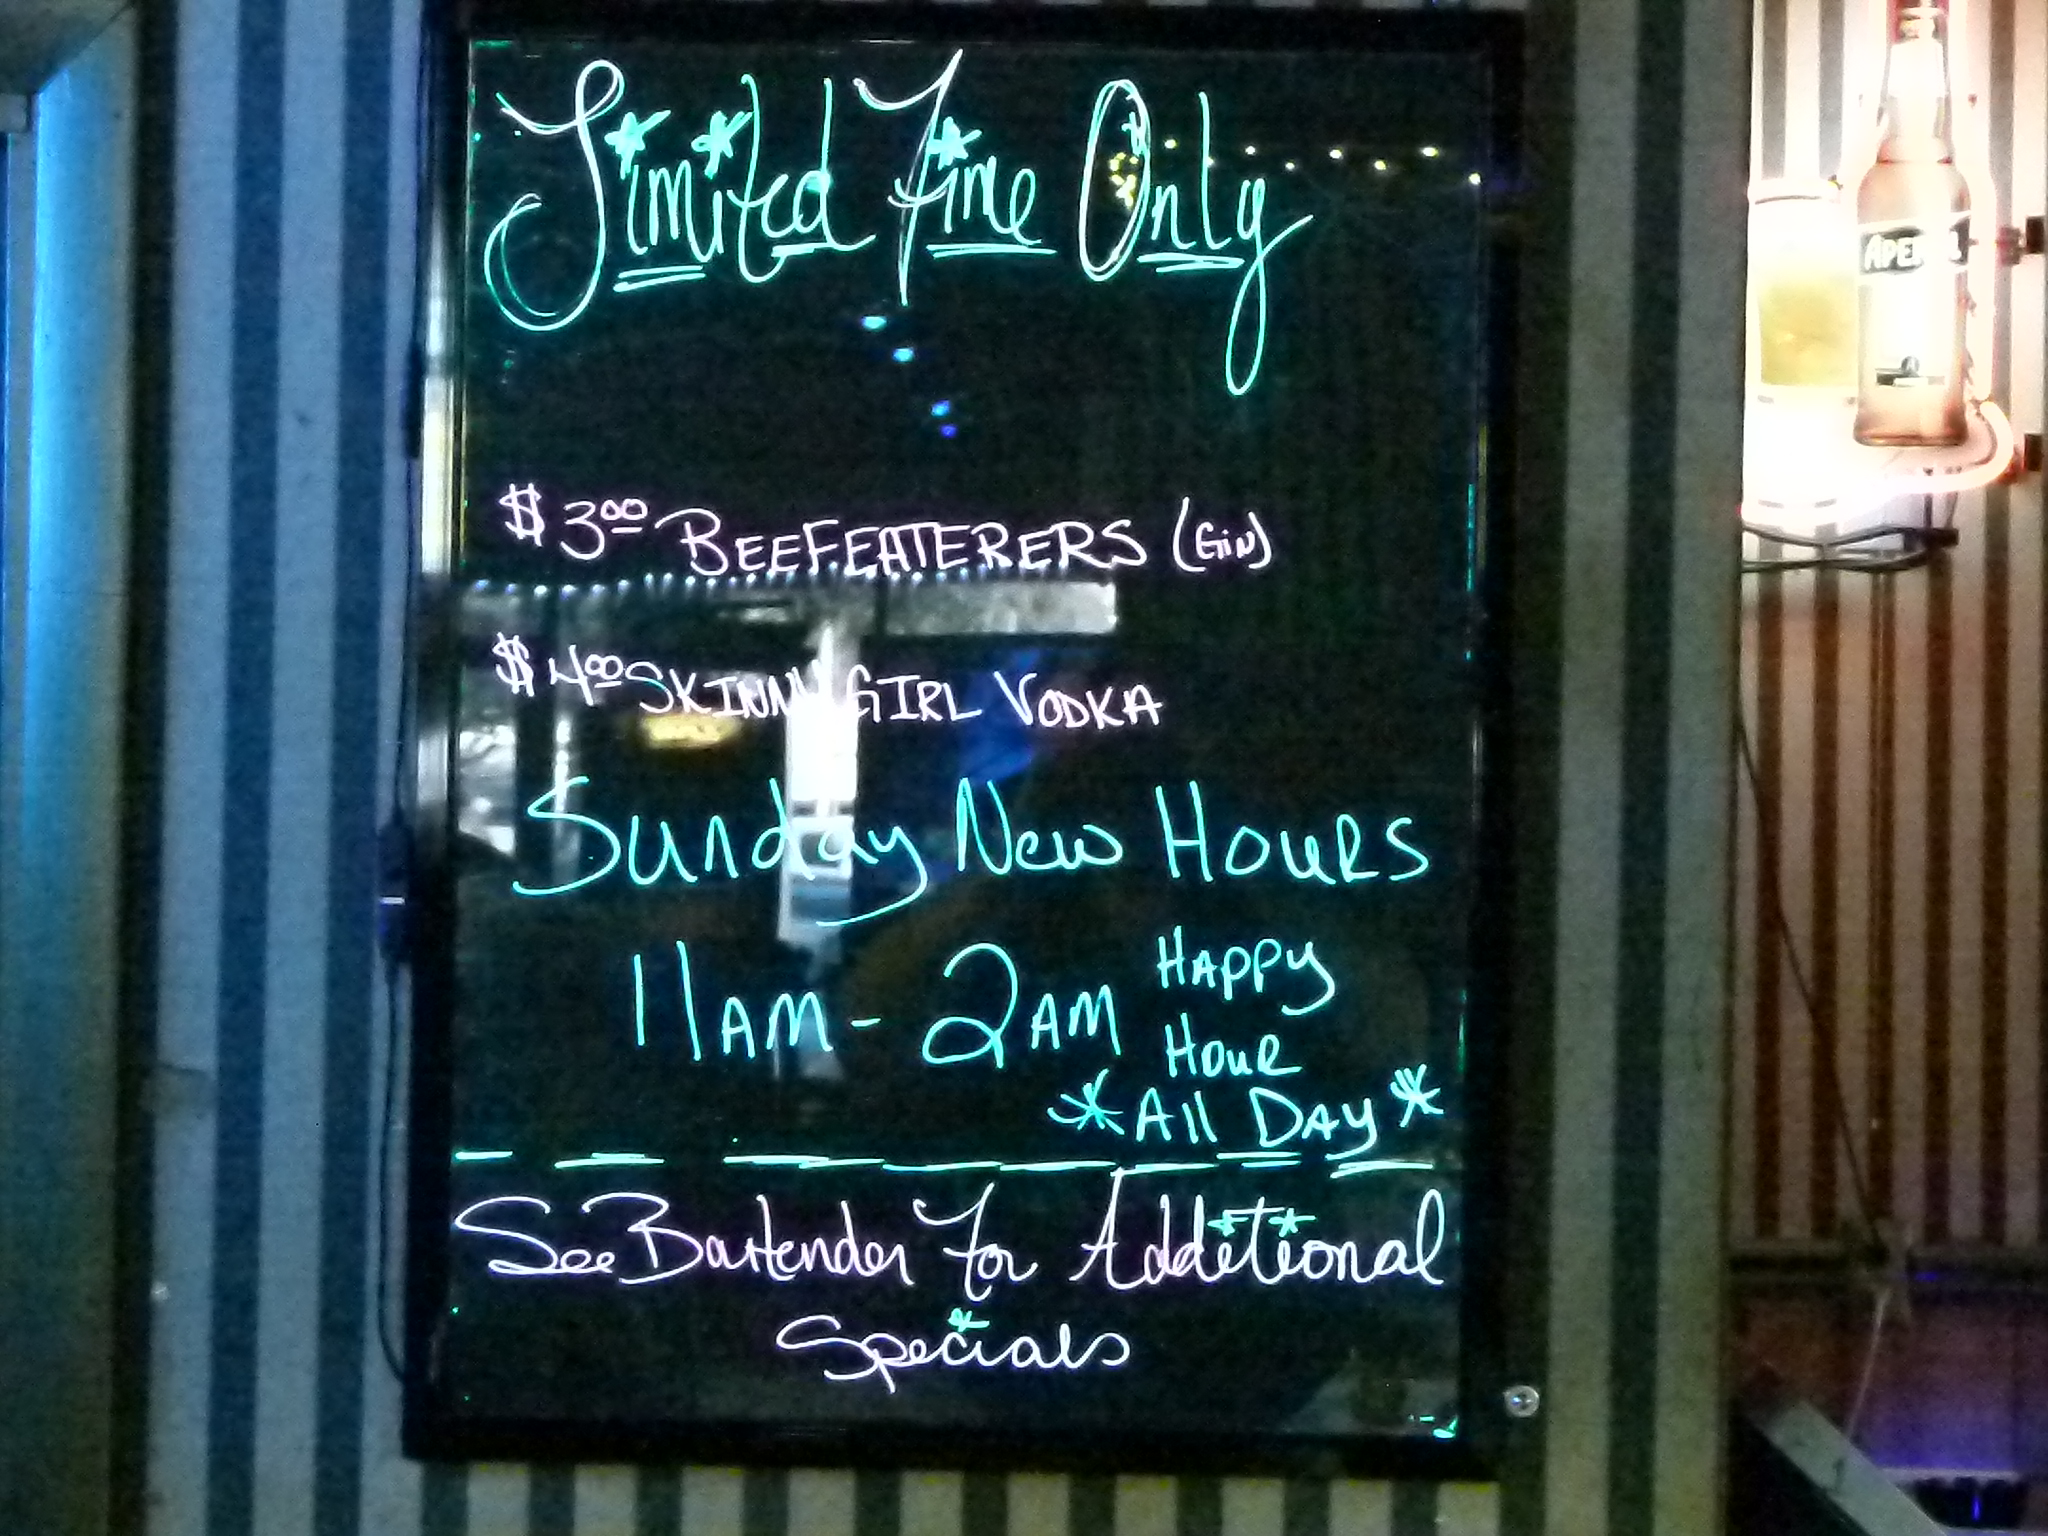 Limited Time Only
$3.00 BEEFEATERERS (GiN)
$4.00 SKINNY GIRL VODKA
Sunday New Hours
11AM - 2AM HAPPY
HOUR
*All DAY*
See Bartender For Additional
Specials
APEROL